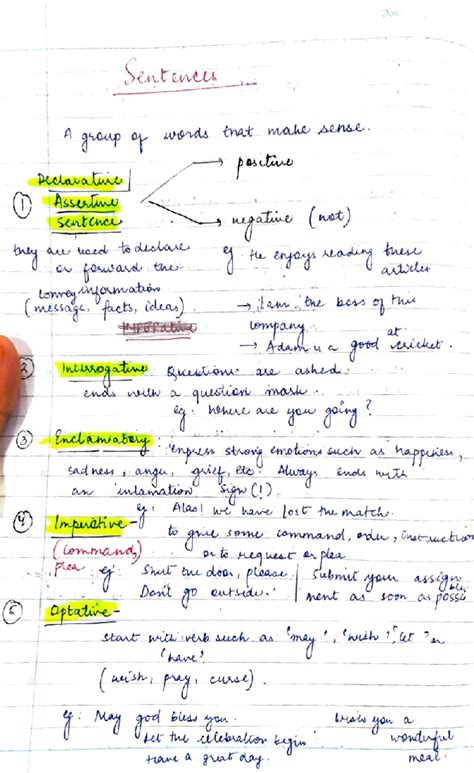 Date
Sentences
A group of words that make sense.
Declarative/ → positive
① Assertive
sentence → negative (not)
they are used to declare eg He enjoys reading these
or forward the articles
convey information
(message, facts, ideas) → I am the boss of this
Imperative company
→ Adam is a good at cricket.
② Interrogative Questions are asked.
ends with a question mark.
eg: Where are you going?
③ Exclamatory: express strong emotions such as happiness,
sadness, anger, grief, etc. Always ends with
an exlamation sign (!).
eg: Alas! we have lost the match.
④ Imperative - to give some command, order, instruction
(command, or to request or plea
plea eg: Shut the door, please | Submit your assign
Don't go outside. | ment as soon as possible
⑤ Optative -
start with verb such as 'may', 'wish', 'let' or
'have'
(wish, pray, curse).
eg: May god bless you. Wish you a
Let the celebration begin wonderful
Have a great day. meal.